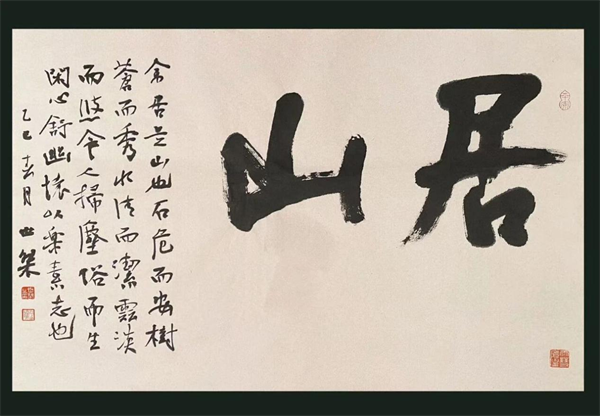 居山
余居山也石危而安樹
蒼而秀水清而潔雲淡
而悠令人掃塵俗而生
閑心舒幽懷以樂素志也
乙巳 月 世